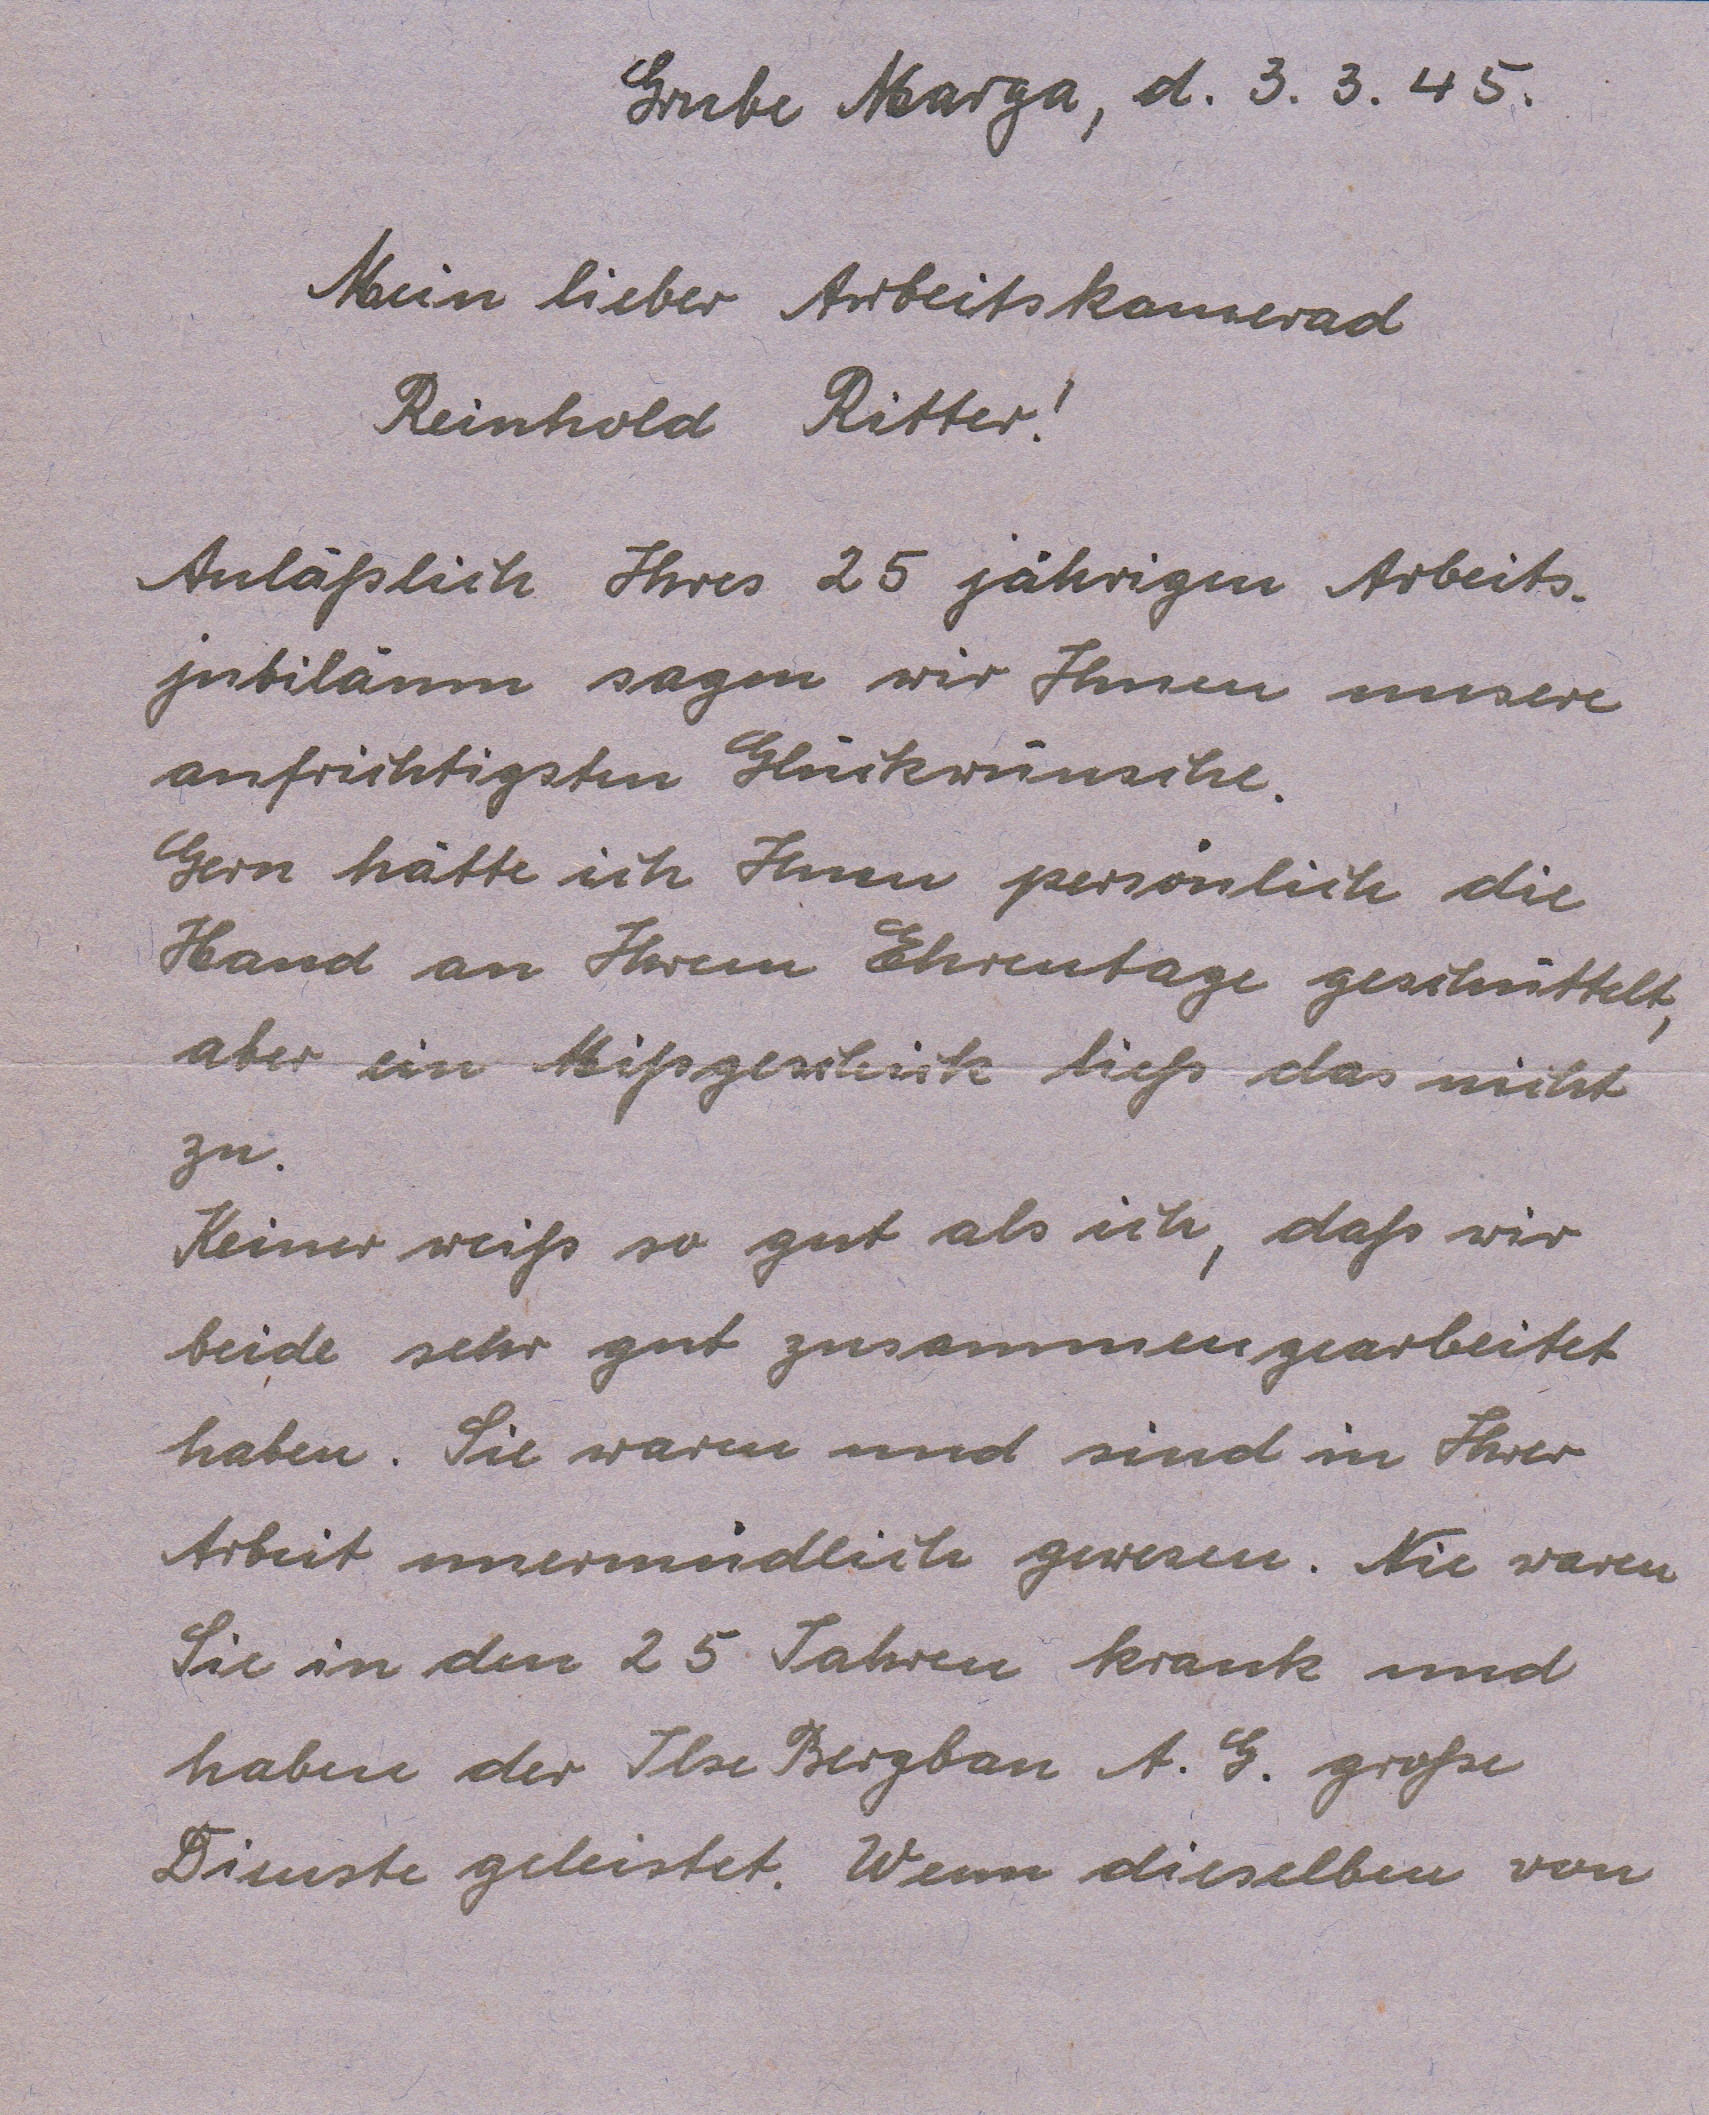 Grube Marga, d. 3. 3. 45.
Mein lieber Arbeitskamerad
Reinhold Ritter!
Anläßlich Ihres 25 jährigen Arbeits-
jubiläum sagen wir Ihnen unsere
aufrichtigsten Glückwünsche.
Gern hätte ich Ihnen persönlich die
Hand an Ihrem Ehrentage geschüttelt,
aber ein Mißgeschick ließ das nicht
zu.
Keiner weiß so gut als ich, daß wir
beide sehr gut zusammengearbeitet
haben. Sie waren und sind in Ihrer
Arbeit unermüdlich gewesen. Nie waren
Sie in den 25 Jahren krank und
haben der Ilse Bergbau A. G. große
Dienste geleistet. Wenn dieselben von